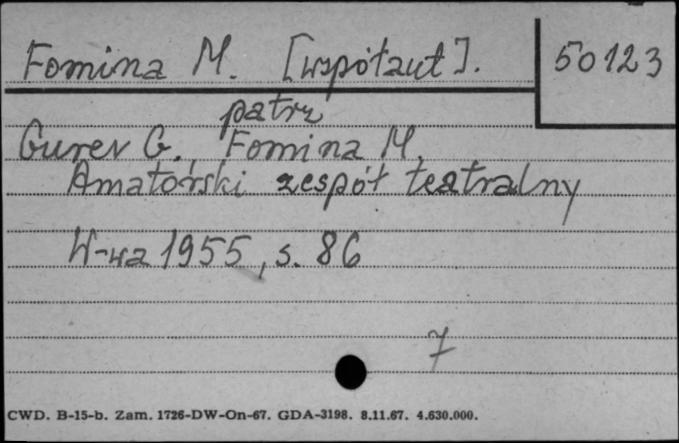 Fomina M. [współaut].
50123
patrz
Gurev G., Fomina M.
Amatorski zespół teatralny
W-wa 1955, s. 86
7
CWD. B-15-b. Zam. 1726-DW-On-67. GDA-3198. 8.11.67. 4.630.000.